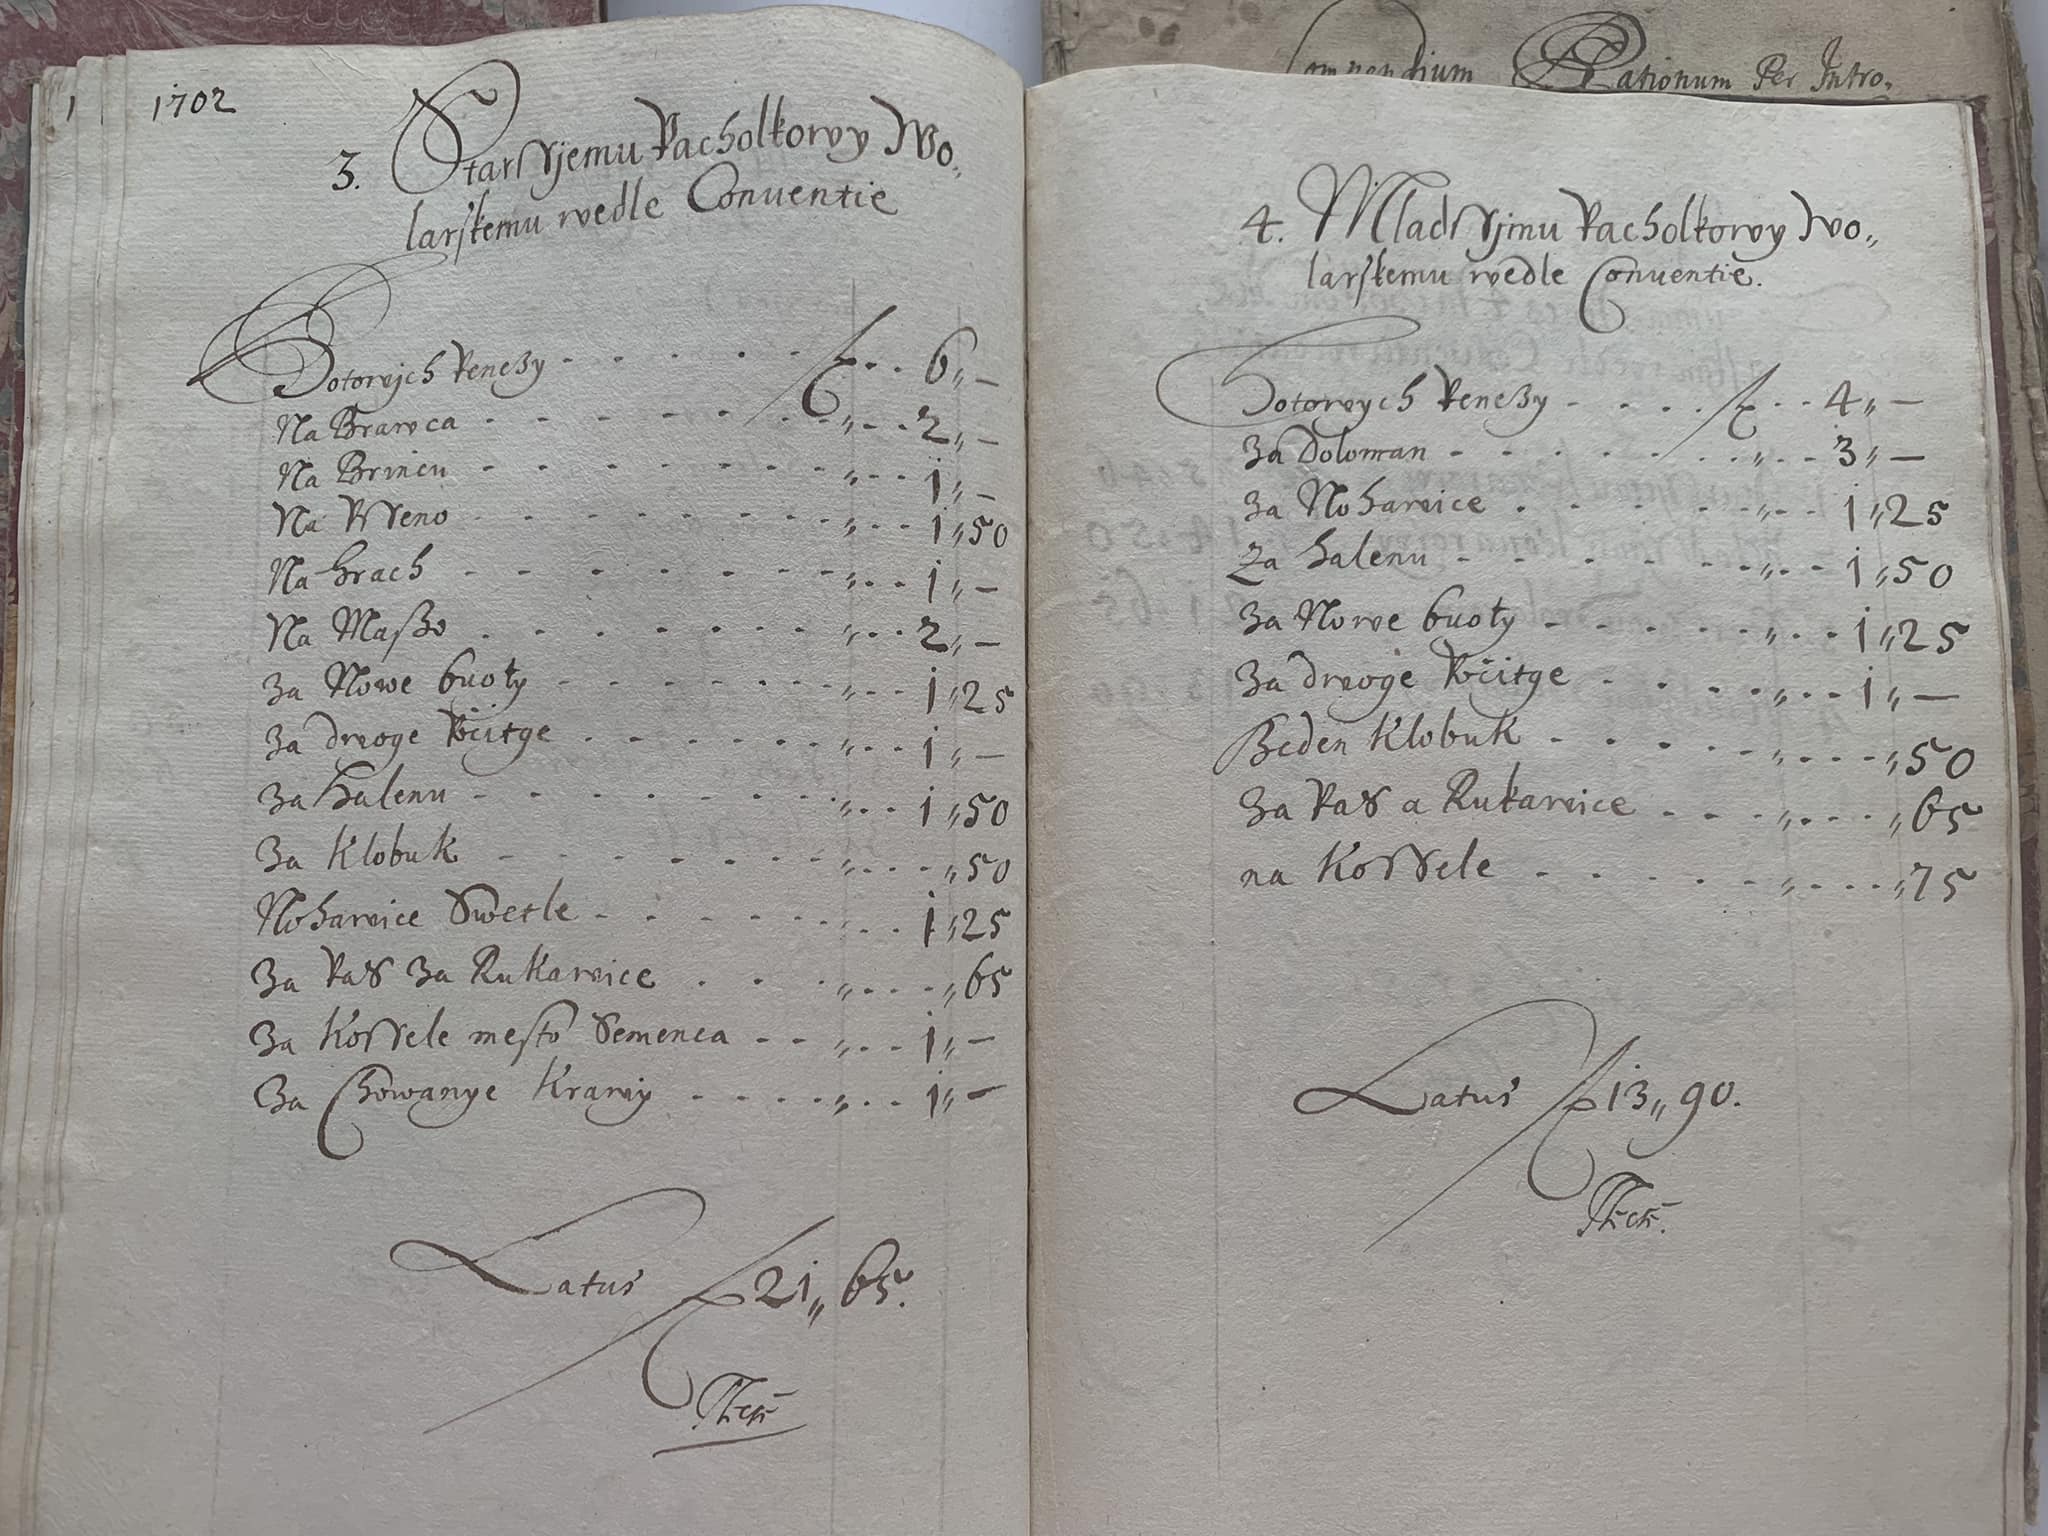 1702
3. Starssjemu Pacholkowy Wo„
larskemu wedle Conventie
Hotowjch Penezy - - - - - f - - - 6 „ —
Na Brawca - - - - - - - „ - - - 2 „ —
Na Brincu - - - - - - - „ - - - 1 „ —
Na Psseno - - - - - - - „ - - - 1 „ 50
Na hrach - - - - - - - „ - - - 1 „ —
Na Maßo - - - - - - - „ - - - 2 „ —
Za Nowe boty - - - - - - - „ - - - 1 „ 25
Za dwoge Pocitge - - - - - - „ - - - 1 „ —
Za halenu - - - - - - - „ - - - 1 „ 50
Za Klobuk - - - - - - - „ - - - „ 50
Nohawice Swetle - - - - - - - 1 „ 25
Za Pas Za Rukawice - - - - „ - - - „ 65
Za Kossele mesto Semenca - - „ - - - 1 „ —
Za Chowanye Krawy - - - - - „ - - - 1 „ —
Latus f 21 „ 65.
Compendium Rationum Per Intro„
4. Mladssjmu Pacholkowy Wo„
larskemu wedle Conventie.
Hotowych Penezy - - - - f - - 4 „ —
Za Doloman - - - - - - - „ - - - 3 „ —
Za Nohawice - - - - - „ - - - 1 „ 25
Za halenu - - - - - - - „ - - - 1 „ 50
Za Nowe boty - - - - - „ - - - 1 „ 25
Za dwoge Pocitge - - - - „ - - - 1 „ —
Geden Klobuk - - - - - „ - - - - „ 50
Za Pas a Rukawice - - - - „ - - - - „ 65
na Kossele - - - - - „ - - - - „ 75
Latus f 13 „ 90.